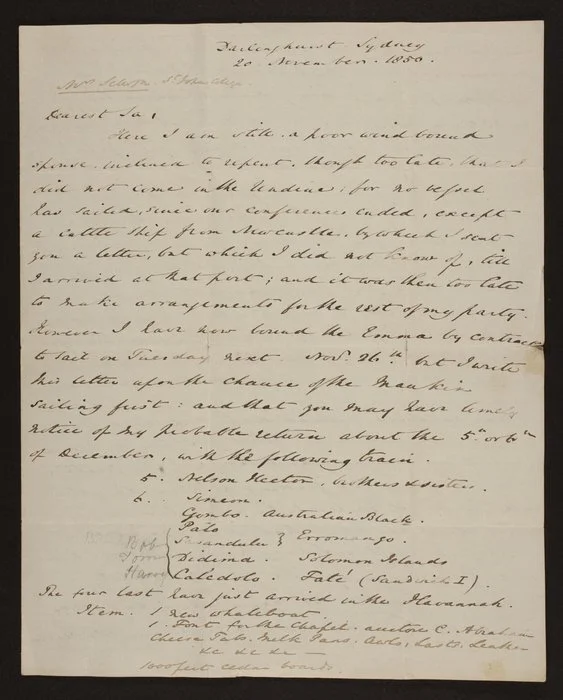 Darlinghurst Sydney
20 November. 1850.
Mrs Selwyn St John's College
Dearest Sa,
Here I am still a poor wind bound
spouse. inclined to repent. though too late, that I
did not come in the Undine; for no vessel
has sailed, since our conferences ended, except
a cattle ship from Newcastle, by which I sent
you a letter, but which I did not know of, till
I arrived at that port; and it was then too late
to make arrangements for the rest of my party.
However I have now bound the Emma by contract
to sail on Tuesday next. Nov. 26th but I write
this letter upon the chance of the Maukin
sailing first: and that you may have timely
notice of my probable return about the 5th or 6th
of December, with the following train.
5. Nelson Hector, brothers & sisters.
6. Simeon.
Gombo. Australian Black.
Pato
Sasandulu } Erromango.
Bob
Didimd. Solomon Islands
Harry Calédolo. Faté (Sandwich I).
The four last have just arrived in the Havannah.
Item. 1 new whaleboat
1. Font for the Chapel. auctore C. Abraham
Cheese Tubs. Milk Pans. Awls, Lasts, Leather
&c &c &c
1000 feet cedar boards.